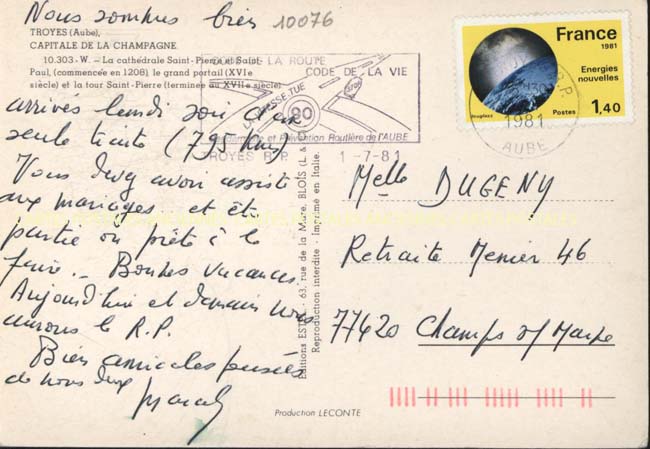 Nous sommes bien
10076
TROYES (Aube),
CAPITALE DE LA CHAMPAGNE
10.303 - W. - La cathédrale Saint-Pierre et Saint-
Paul, (commencée en 1208), le grand portail (XVIe
siècle) et la tour Saint-Pierre (terminée au XVIIe siècle)
arrivés lundi soir d'une
seule traite (795 kms)
Vous devez avoir assisté
aux mariages et êtes
partie ou prête à le
faire. - Bonnes vacances.
Aujourd'hui et demain nous
aurons le R.P.
Bien amicales pensées
de nous deux
LA ROUTE
CODE DE LA VIE
VITESSE TUE
90
Prévention Routière de l'AUBE
TROYES R.P.
1-7-81
France
1981
Energies
nouvelles
Postes
1,40
R.P.
1981
AUBE
Melle DUGENY
Retraite Menier 46
77420 Champs s/ Marne
Editions EST - 63, rue de la Mare, BLOIS (L. &
Reproduction interdite - Imprimé en Italie.
Production LECONTE